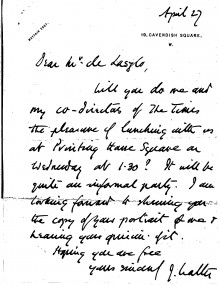 April 27
MAYFAIR
16, CAVENDISH SQUARE,
W.
Dear Mr. de Laszlo,
Will you do me and
my co-directors of The Times
the pleasure of lunching with us
at Printing House Square on
Wednesday at 1.30? It will be
quite an informal party. I am
looking forward to showing you
the copy of your portrait of me &
hearing your opinion of it.
Hoping you are free
Yours sincerely
J. Walter